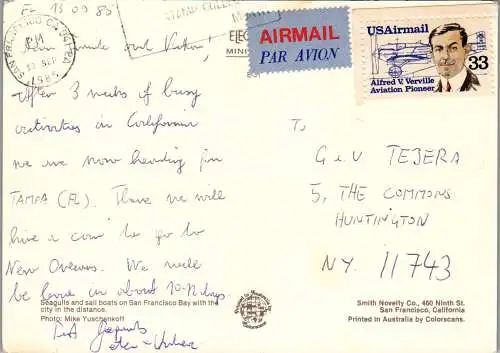 FL 13 09 85
SAN FRANCISCO CA
PM
13 SEP
1985
AIRMAIL
PAR AVION
USAirmail
33
Alfred V. Verville
Aviation Pioneer
After 3 weeks of busy
activities in California
we are now heading for
TAMPA (FL). There we will
hire a car to go to
New Orleans. We will
be home in about 10-12 days
To
G & V TEJERA
5, THE COMMONS
HUNTINGTON
NY. 11743
Seagulls and sail boats on San Francisco Bay with the
city in the distance.
Photo: Mike Yuschenkoff
Smith Novelty Co., 460 Ninth St.
San Francisco, California
Printed in Australia by Colorscans.